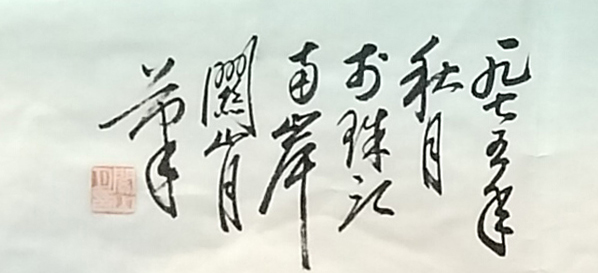 一九七五年
秋月
於珠江
南岸
關山月
筆